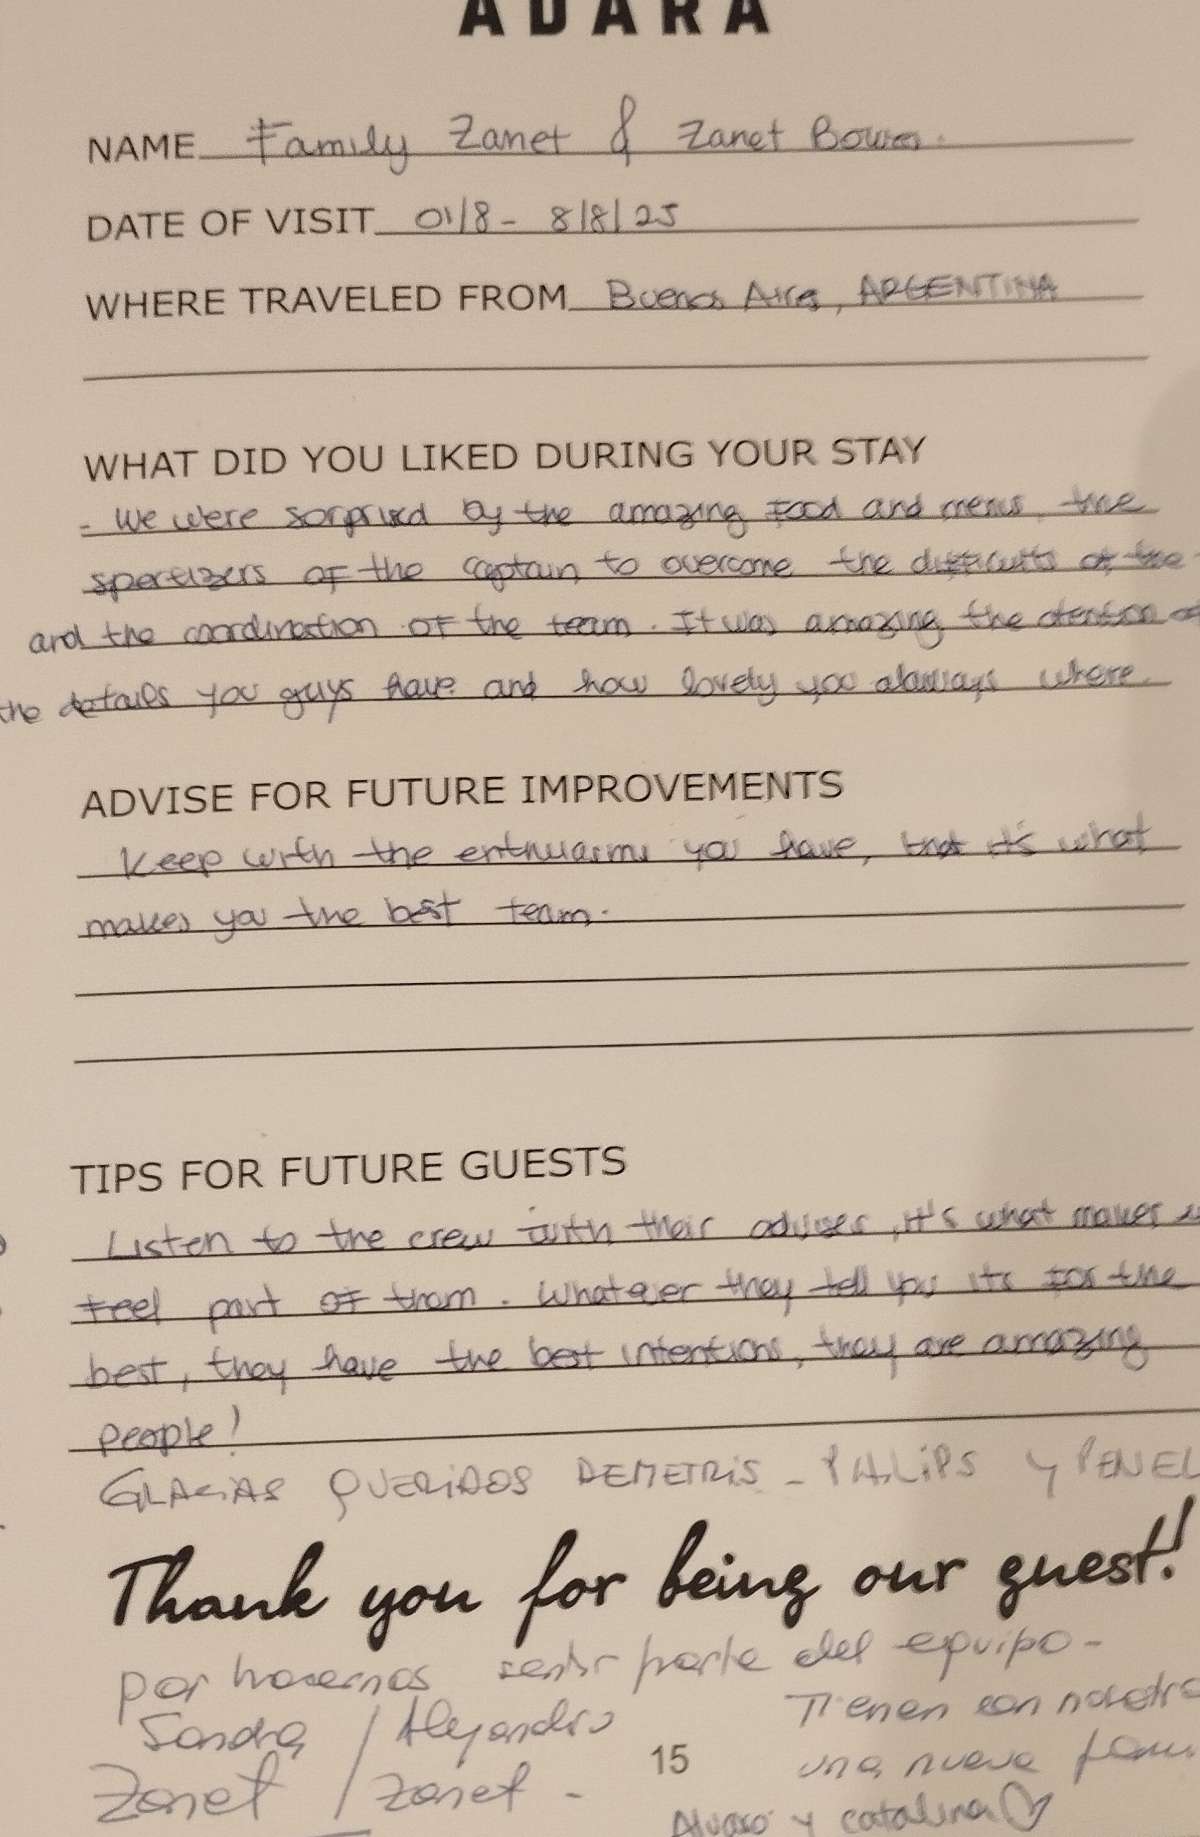 ADARA
NAME Family Zanet & Zanet Bower.
DATE OF VISIT 01/8 - 8/8/25
WHERE TRAVELED FROM Buenos Aires, ARGENTINA
WHAT DID YOU LIKED DURING YOUR STAY
- We were sorprised by the amazing food and menus, the
spertizers of the captain to overcome the difficults of the
and the coordination of the team. It was amazing the atention of
the details you guys have and how lovely you always where.
ADVISE FOR FUTURE IMPROVEMENTS
Keep with the enthuasms you have, that it's what
makes you the best team.
TIPS FOR FUTURE GUESTS
Listen to the crew with their advises, it's what makes us
feel part of them. Whatever they tell you its for the
best, they have the best intentions, they are amazing
people!
GRACIAS QUERIDOS DEMETRIS - PHILIPS y PENEL
Thank you for being our guest!
por hacernos sentir parte del equipo -
Sandra / Alejandro Tienen con nosotros
Zanet / Zanet - 15 una nueva fami
Alvaro y Catalina ♡